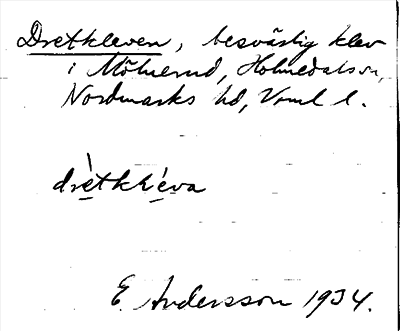 Dretkleven, besvärlig klev
i Mölnerud, Holmedals sn,
Nordmarks hd, Vrml l.
drètkléva
E. Andersson 1934.